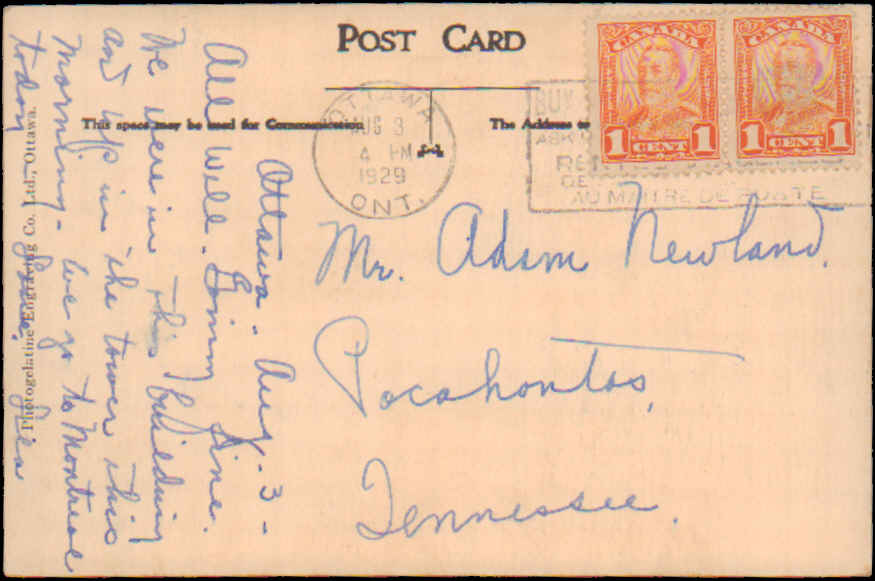 POST CARD
This space may be used for Communication
The Address to
CANADA
1 CENT 1
CANADA
1 CENT 1
OTTAWA
AUG 3
4 PM
1929
ONT.
BUY
ASK
RE
DE
AU MAITRE DE POSTE
Mr. Adam Newland.
Pocahontas,
Tennessee.
Ottawa - Aug. 3 -
All well. fine.
We were in this building
and up in the tower this
morning - We go to Montreal
today
Photogelatine Engraving Co. Ltd., Ottawa.